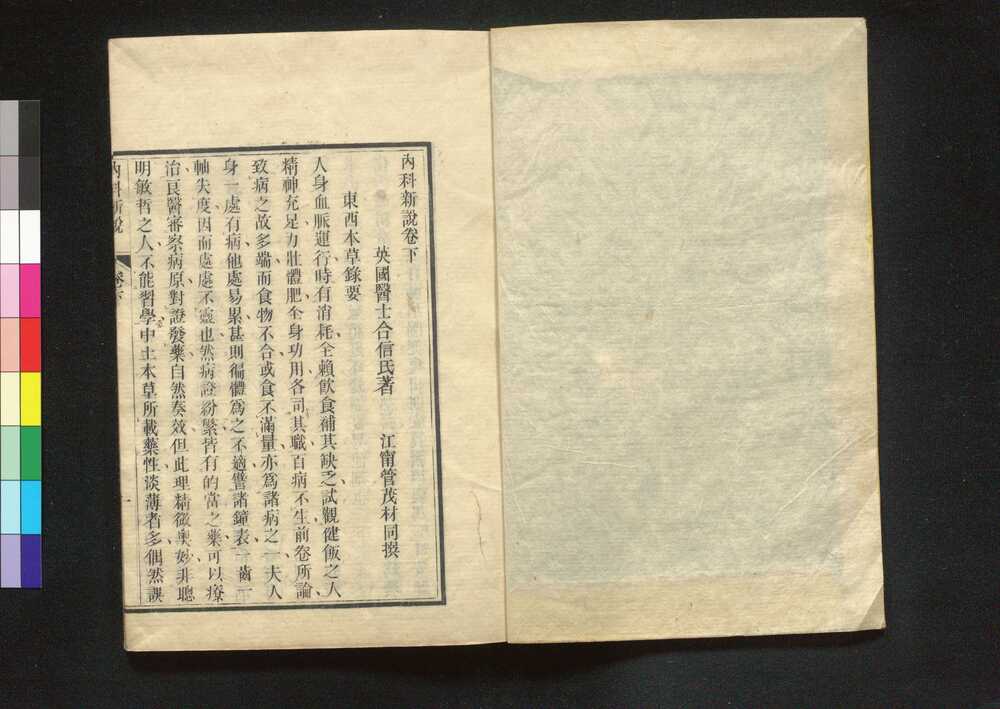 內科新說卷下
英國醫士合信氏著　江甯管茂材同撰
東西本草錄要
人身血脈運行時有消耗全賴飲食補其缺乏試觀健飯之人
精神充足力壯體肥全身功用各司其職百病不生前卷所論
致病之故多端而食物不合或食不滿量亦爲諸病之一夫人
身一處有病他處易累甚則徧體爲之不適譬諸鐘表一齒一
軸失度因而處處不靈也然病證紛繁皆有的當之藥可以療
治良醫審察病原對證發藥自然奏效但此理精微奧妙非聰
明敏哲之人不能習學中土本草所載藥性淡薄者多偶然誤
內科新說　卷下　一